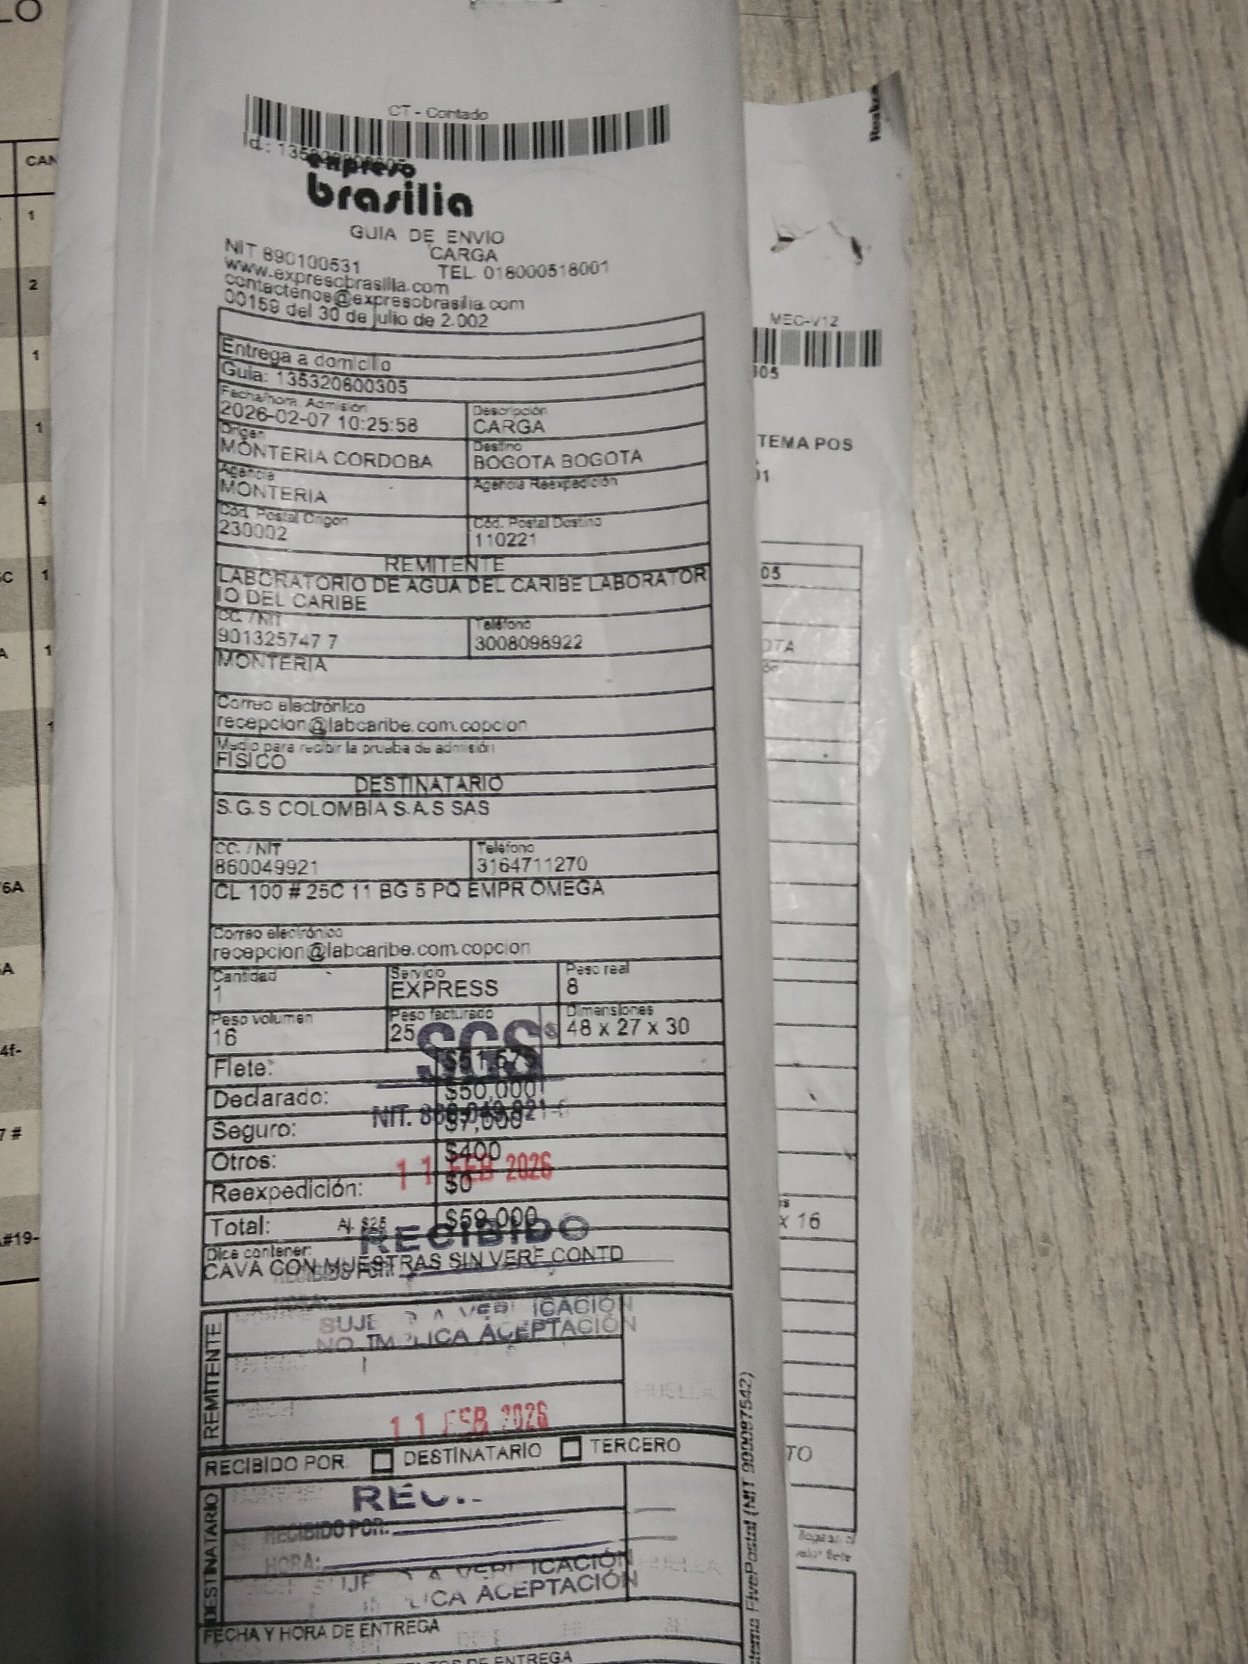 CT - Contado
expreso
brasilia
GUIA DE ENVIO
CARGA
NIT 890100531
TEL 018000518001
www.expresobrasilia.com
contactenos@expresobrasilia.com
00159 del 30 de julio de 2.002
Entrega a domicilio
Guia: 135320800305
Fecha/hora. Admisión
2026-02-07 10:25:58
Descripción
CARGA
Origen
MONTERIA CORDOBA
Destino
BOGOTA BOGOTA
Agencia
MONTERIA
Agencia Reexpedición
Cód. Postal Origen
230002
Cód. Postal Destino
110221
REMITENTE
LABORATORIO DE AGUA DEL CARIBE LABORATOR
IO DEL CARIBE
CC. / NIT
901325747 7
Teléfono
3008098922
MONTERIA
Correo electrónico
recepcion@labcaribe.com.copcion
Medio para recibir la prueba de admisión
FISICO
DESTINATARIO
S.G.S COLOMBIA S.A.S SAS
CC. / NIT
860049921
Teléfono
3164711270
CL 100 # 25C 11 BG 5 PQ EMPR OMEGA
Correo electrónico
recepcion@labcaribe.com.copcion
Cantidad
1
Servicio
EXPRESS
Peso real
8
Peso volumen
16
Peso facturado
25
Dimensiones
48 x 27 x 30
SGS
Flete: $51,575
Declarado: $50,000
Seguro: $7,000
Otros: $400
11 FEB 2026
Reexpedición: $0
Total: $59,000
RECIBIDO
Dice contener:
CAVA CON MUESTRAS SIN VERF CONTD
REMITENTE
NO IMPLICA ACEPTACIÓN
11 FEB 2026
RECIBIDO POR: DESTINATARIO TERCERO
DESTINATARIO
RECIBIDO POR:
HORA:
ACEPTACIÓN
FECHA Y HORA DE ENTREGA
DE ENTREGA
FivePostal (NIT 900087542)
MEC-V12
305
TEMA POS
05
x 16
CAN
1
2
1
1
4
1
1
6A
7 #
#19-